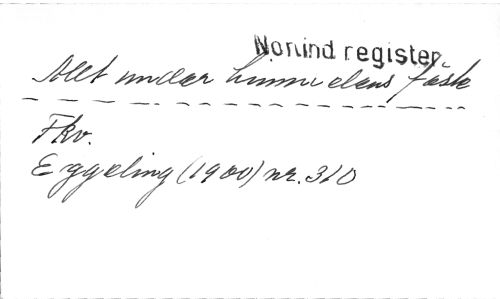 Nonind register
Allt under himmelens fäste
Fkv.
Eggeling (1900) nr. 310